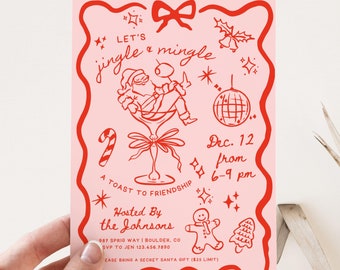 LET'S
jingle & mingle
Dec. 12
from
6-9 pm
A TOAST TO FRIENDSHIP
Hosted By
the Johnsons
987 SPRIG WAY | BOULDER, CO
RSVP TO JEN 123.456.7890
EASE BRING A SECRET SANTA GIFT ($25 LIMIT)